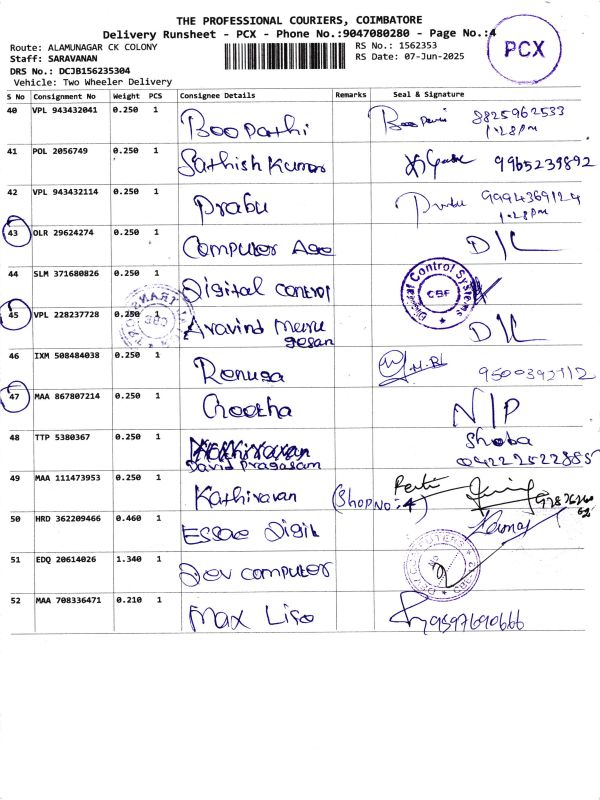 THE PROFESSIONAL COURIERS, COIMBATORE
Delivery Runsheet - PCX - Phone No.:9047080280 - Page No.:4
PCX
Route: ALAMUNAGAR CK COLONY
RS No.: 1562353
Staff: SARAVANAN
RS Date: 07-Jun-2025
DRS No.: DCJB156235304
Vehicle: Two Wheeler Delivery
S No Consignment No Weight PCS Consignee Details Remarks Seal & Signature
40 VPL 943432041 0.250 1 Boopathi 8825962533
1.28pm
41 POL 2056749 0.250 1 Sathish Kumar 9965239892
42 VPL 943432114 0.250 1 Prabu Prabu 9994369124
1.28pm
43 OLR 29624274 0.250 1 Computer Age D/L
44 SLM 371680826 0.250 1 Digital control
Digital Control Systems
CBE
45 VPL 228237728 0.250 1 Aravind Meru
gesan D/L
46 IXM 508484038 0.250 1 Renuga
47 MAA 867807214 0.250 1 Geetha N/P
48 TTP 5380367 0.250 1 Shoba
David Pragasam 04222522885
49 MAA 111473953 0.250 1 Kathiravan (Shop No:4)
50 HRD 362209466 0.460 1 Essae Digit
51 EDQ 20614026 1.340 1 Dev computer
DEV COMPUTERS
52 MAA 708336471 0.210 1 Max Liso 9597690666